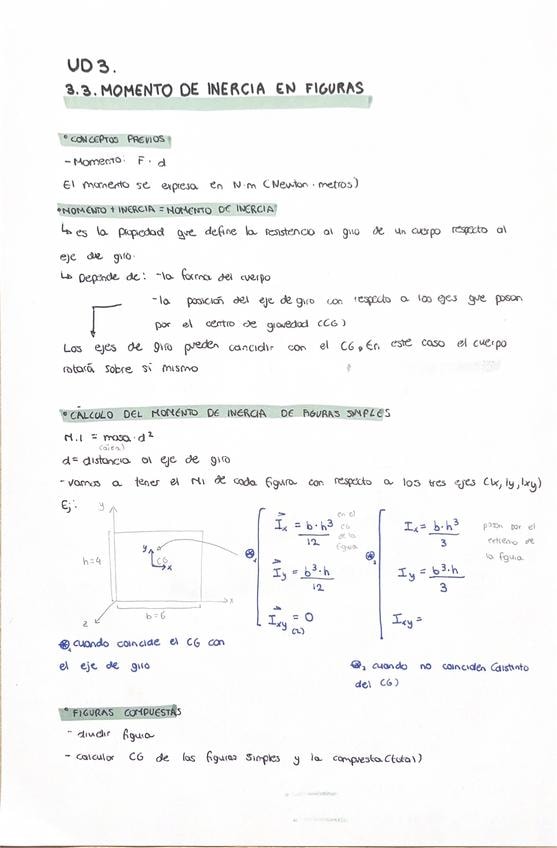 UD 3.
3.3. MOMENTO DE INERCIA EN FIGURAS
• CONCEPTOS PREVIOS
- Momento: F · d
El momento se expresa en N·m (Newton·metros)
• MOMENTO + INERCIA = MOMENTO DE INERCIA
↳ es la propiedad que define la resistencia al giro de un cuerpo respecto al
eje de giro.
↳ Depende de: - la forma del cuerpo
- la posición del eje de giro con respecto a los ejes que pasan
por el centro de gravedad (CG)
Los ejes de giro pueden coincidir con el CG. En este caso el cuerpo
rotará sobre sí mismo
• CALCULO DEL MOMENTO DE INERCIA DE FIGURAS SIMPLES
M.I = masa · d²
(área)
d = distancia al eje de giro
- vamos a tener el MI de cada figura con respecto a los tres ejes (Ix, Iy, Ixy)
Ej:
y
h=4
y
CG
x
x
z
b=6
*1
Ix = b·h³/12
en el CG de la figura
Iy = b³·h/12
Ixy = 0
(z)
*2
Ix = b·h³/3
pasan por el extremo de la figura
Iy = b³·h/3
Ixy =
*1 cuando coincide el CG con
el eje de giro
*2 cuando no coinciden (distinto
del CG)
• FIGURAS COMPUESTAS
- dividir figura
- calcular CG de las figuras simples y la compuesta (total)